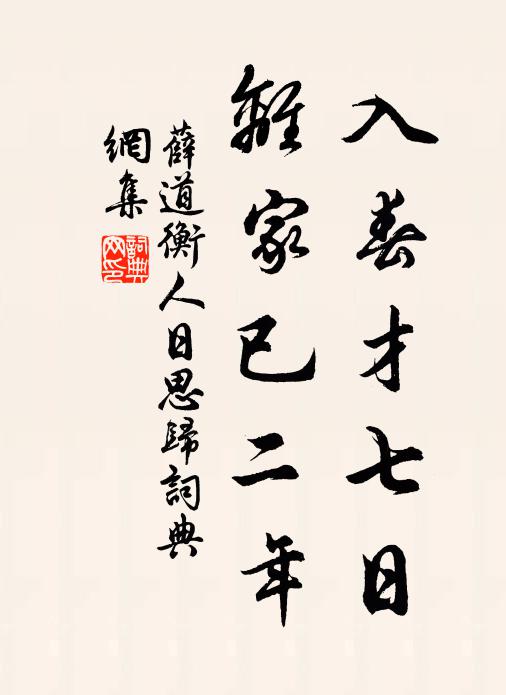 入春才七日
離家已二年
薛道衡人日思歸詞典
網集
詞典網印